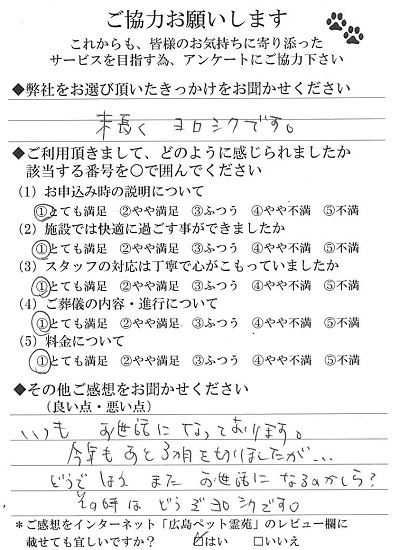 ご協力お願いします
これからも、皆様のお気持ちに寄り添った
サービスを目指す為、アンケートにご協力下さい
◆弊社をお選び頂いたきっかけをお聞かせください
末長く ヨロシクです。
◆ご利用頂きまして、どのように感じられましたか
該当する番号を○で囲んでください
(1) お申込み時の説明について
①とても満足 ②やや満足 ③ふつう ④やや不満 ⑤不満
(2) 施設では快適に過ごす事ができましたか
①とても満足 ②やや満足 ③ふつう ④やや不満 ⑤不満
(3) スタッフの対応は丁寧で心がこもっていましたか
①とても満足 ②やや満足 ③ふつう ④やや不満 ⑤不満
(4) ご葬儀の内容・進行について
①とても満足 ②やや満足 ③ふつう ④やや不満 ⑤不満
(5) 料金について
①とても満足 ②やや満足 ③ふつう ④やや不満 ⑤不満
◆その他ご感想をお聞かせください
(良い点・悪い点)
いつも お世話になっております。
今年も あと3ヶ月を切りましたが…
どうでしょう また お世話に なるのかしら?
その時は どうぞヨロシクです。
*ご感想をインターネット「広島ペット霊苑」のレビュー欄に
載せても宜しいですか? ☑はい □いいえ